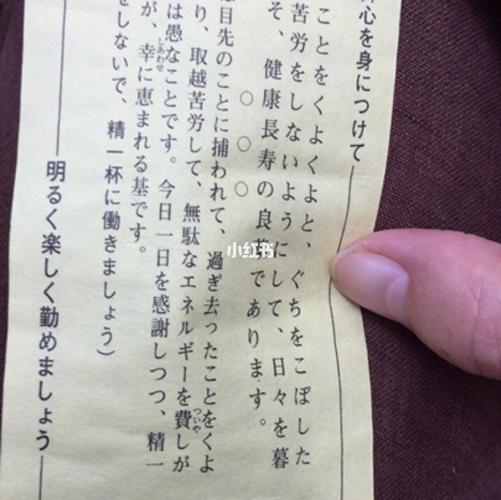 心を身につけて
ことをくよくよと、ぐちをこぼした
苦労をしないようにして、日々を暮
そ、健康長寿の良薬であります。
○○○
目先のことに捕われて、過ぎ去ったことをくよ
り、取越苦労して、無駄なエネルギーを費しが
は愚なことです。今日一日を感謝しつつ、精一
が、幸に恵まれる基です。
をしないで、精一杯に働きましょう)
明るく楽しく勤めましょう
しあわせ
ついや
小红书